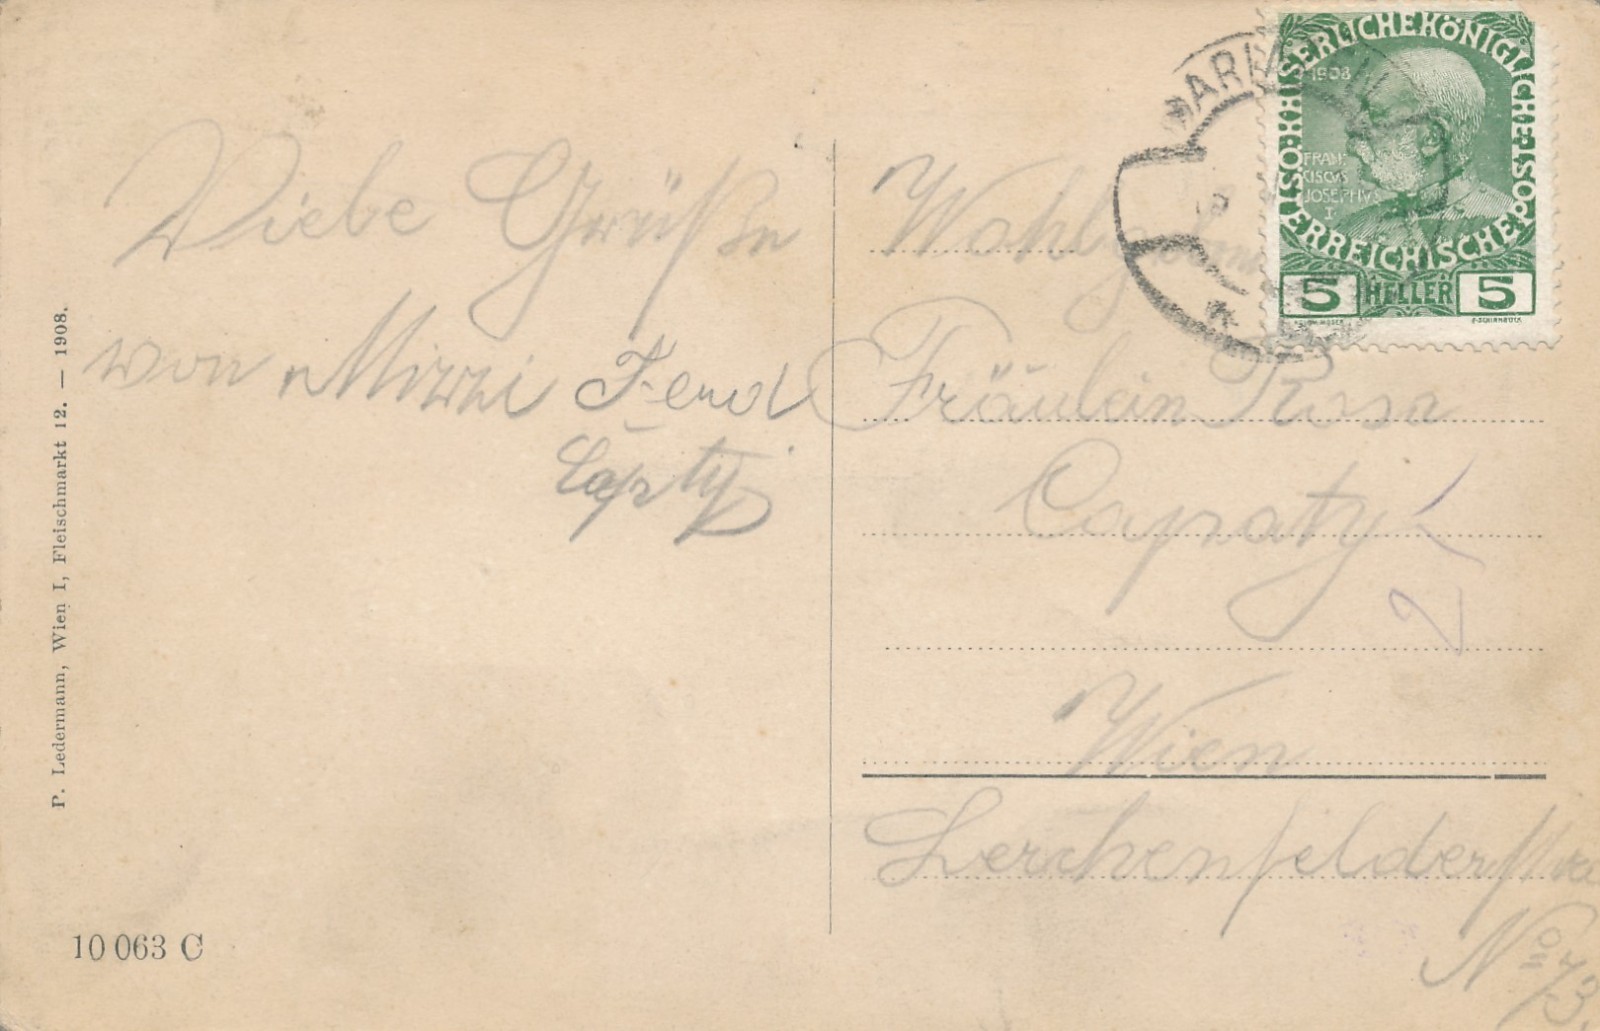 Viele Grüße
von Mizzi Ferd
Capaty
P. Ledermann, Wien I, Fleischmarkt 12. — 1908.
10 063 C
KAISERLICHE KÖNIGLICHE ÖSTERREICHISCHE POST
1908
FRAN-
CISCVS
JOSEPHVS
I
5 HELLER 5
Fräulein Rosa
Capaty
2
Wien
Lerchenfelderstra
No 73.